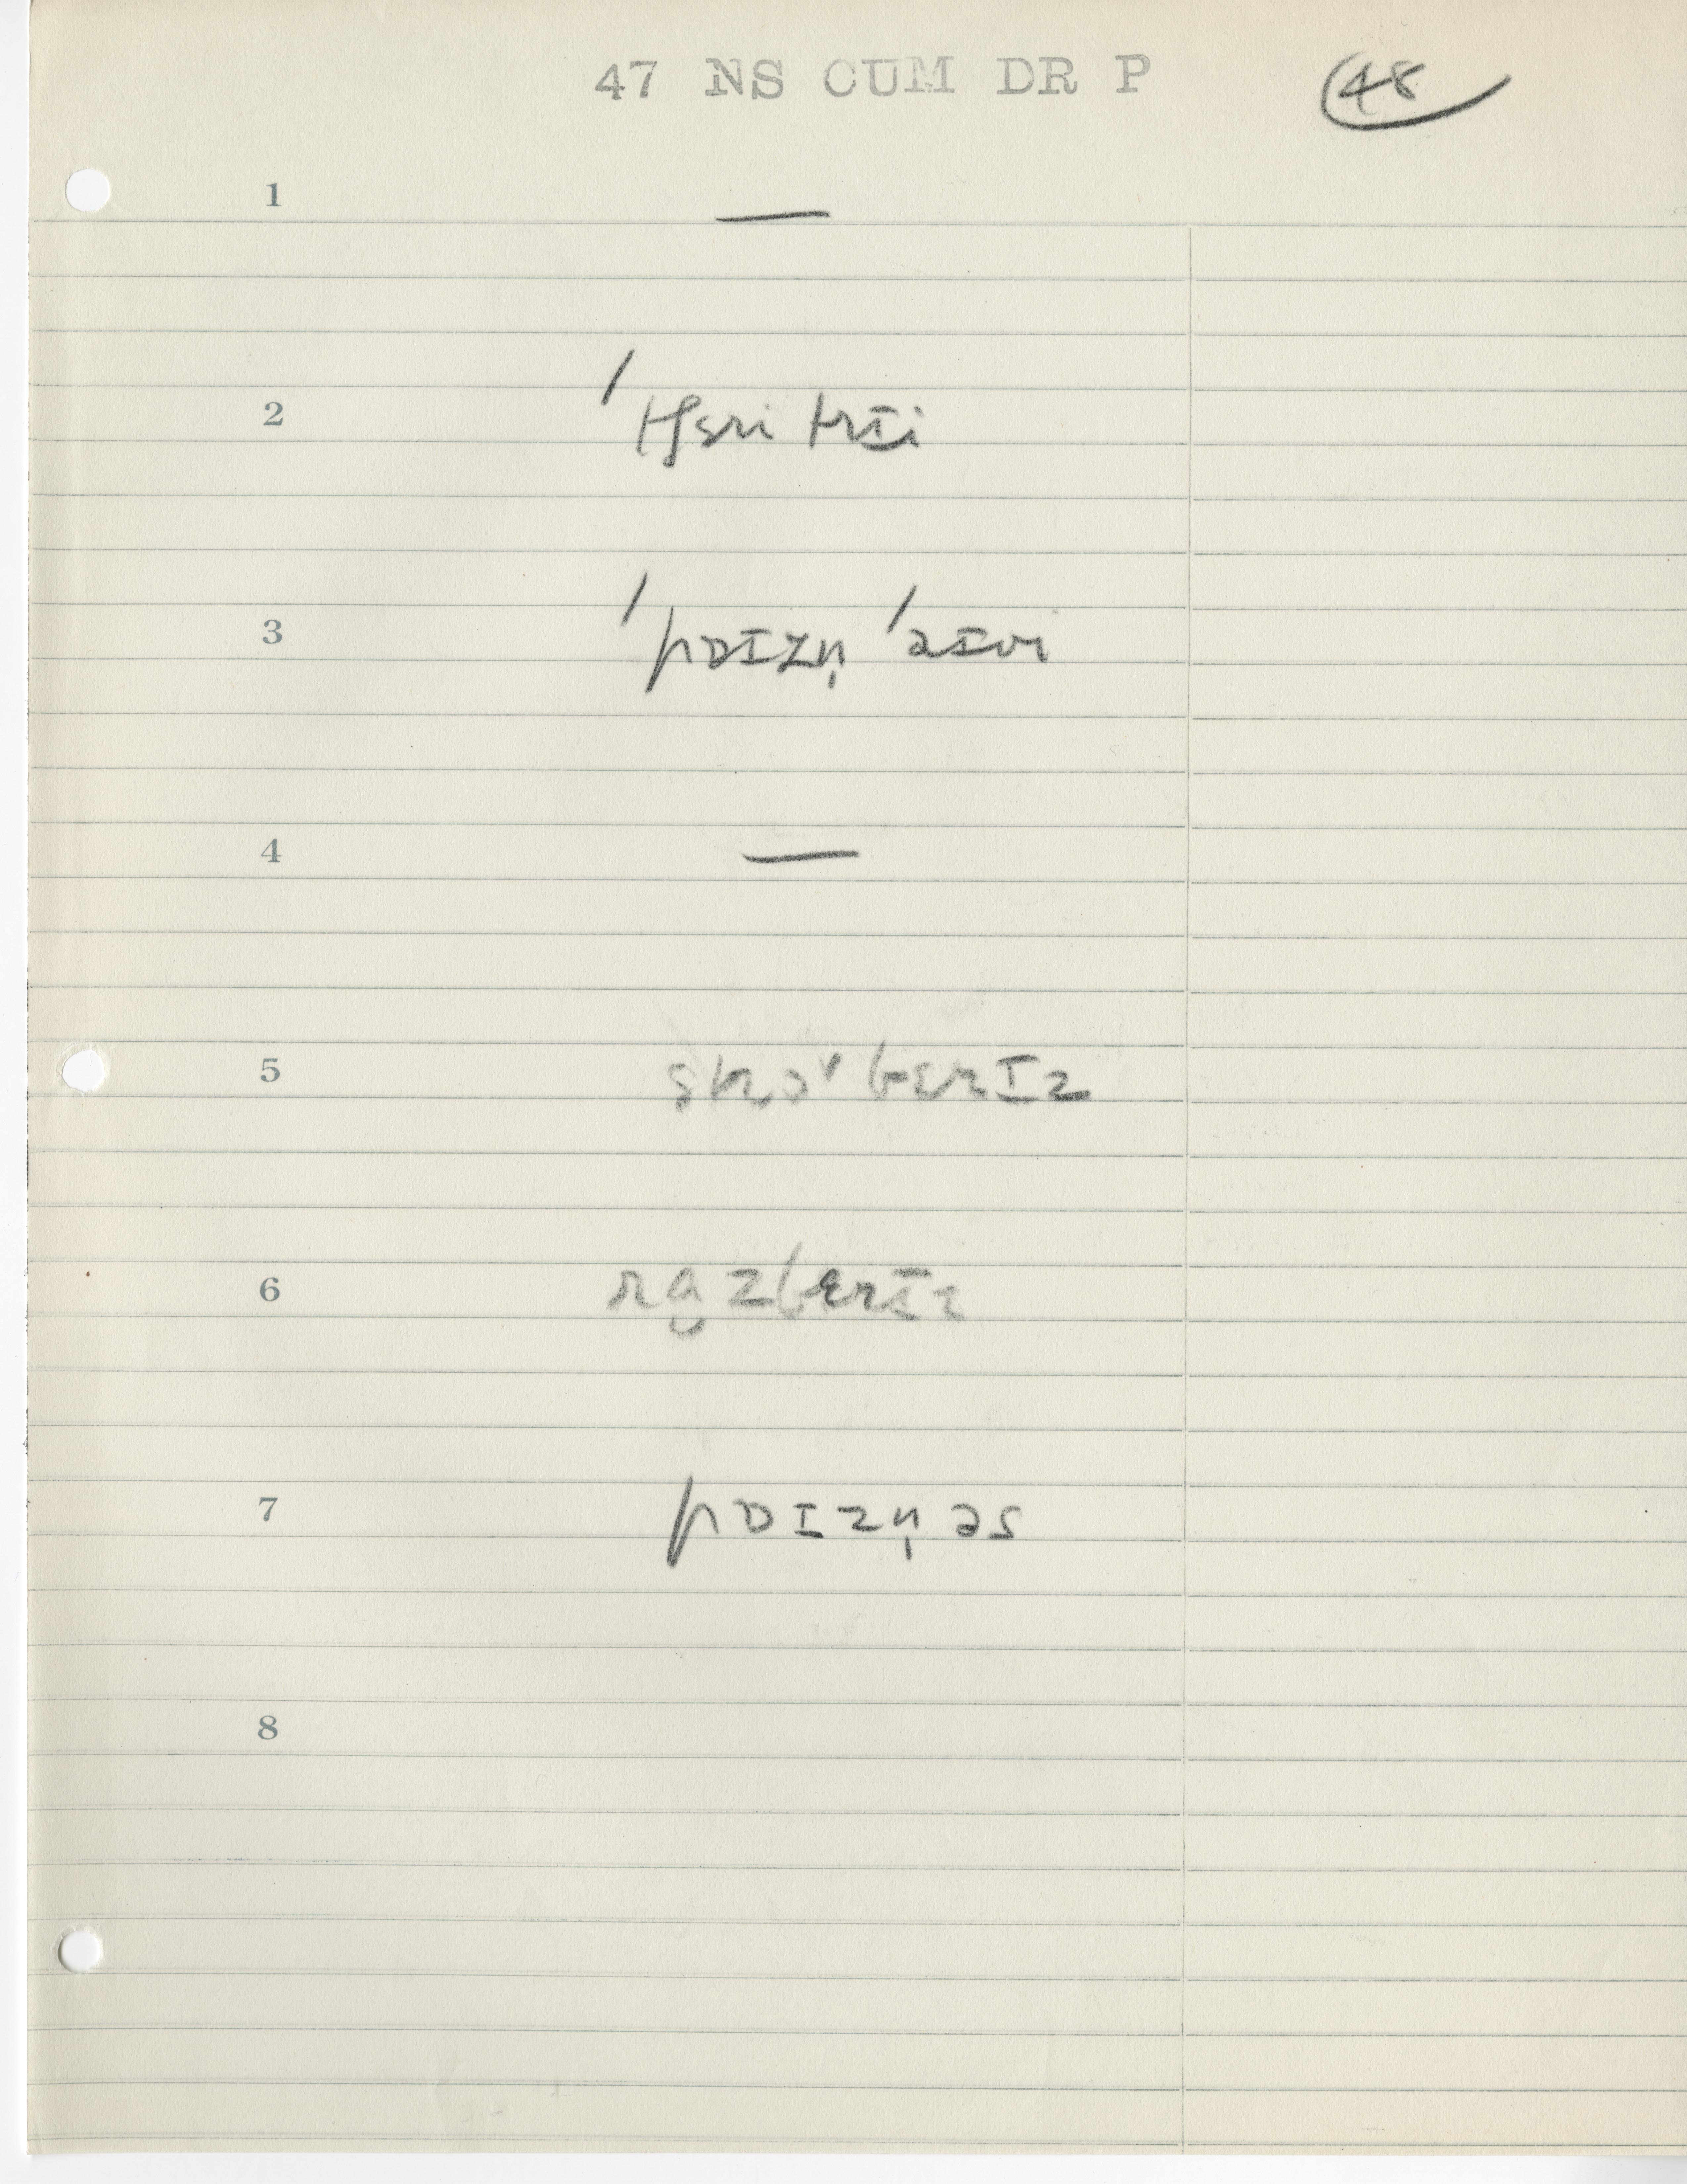 47 NS CUM DR P 48
1 —
2 ˈtʃɛri trɪi
3 ˈpɔɪzn̩ ˈaɪvi
4 —
5 strɔˇbɛrɪz
6 ra̮zbɛrɪz
7 pɔɪzn̩əs
8